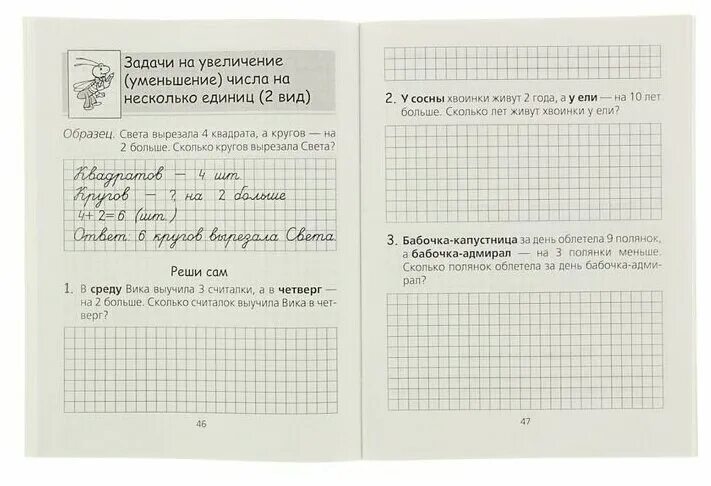 Задачи на увеличение
(уменьшение) числа на
несколько единиц (2 вид)
Образец. Света вырезала 4 квадрата, а кругов — на
2 больше. Сколько кругов вырезала Света?
Квадратов — 4 шт.
Кругов — ?, на 2 больше
4+2=6 (шт.)
Ответ: 6 кругов вырезала Света.
Реши сам
1. В среду Вика выучила 3 считалки, а в четверг —
на 2 больше. Сколько считалок выучила Вика в чет-
верг?
46
2. У сосны хвоинки живут 2 года, а у ели — на 10 лет
больше. Сколько лет живут хвоинки у ели?
3. Бабочка-капустница за день облетела 9 полянок,
а бабочка-адмирал — на 3 полянки меньше.
Сколько полянок облетела за день бабочка-адми-
рал?
47